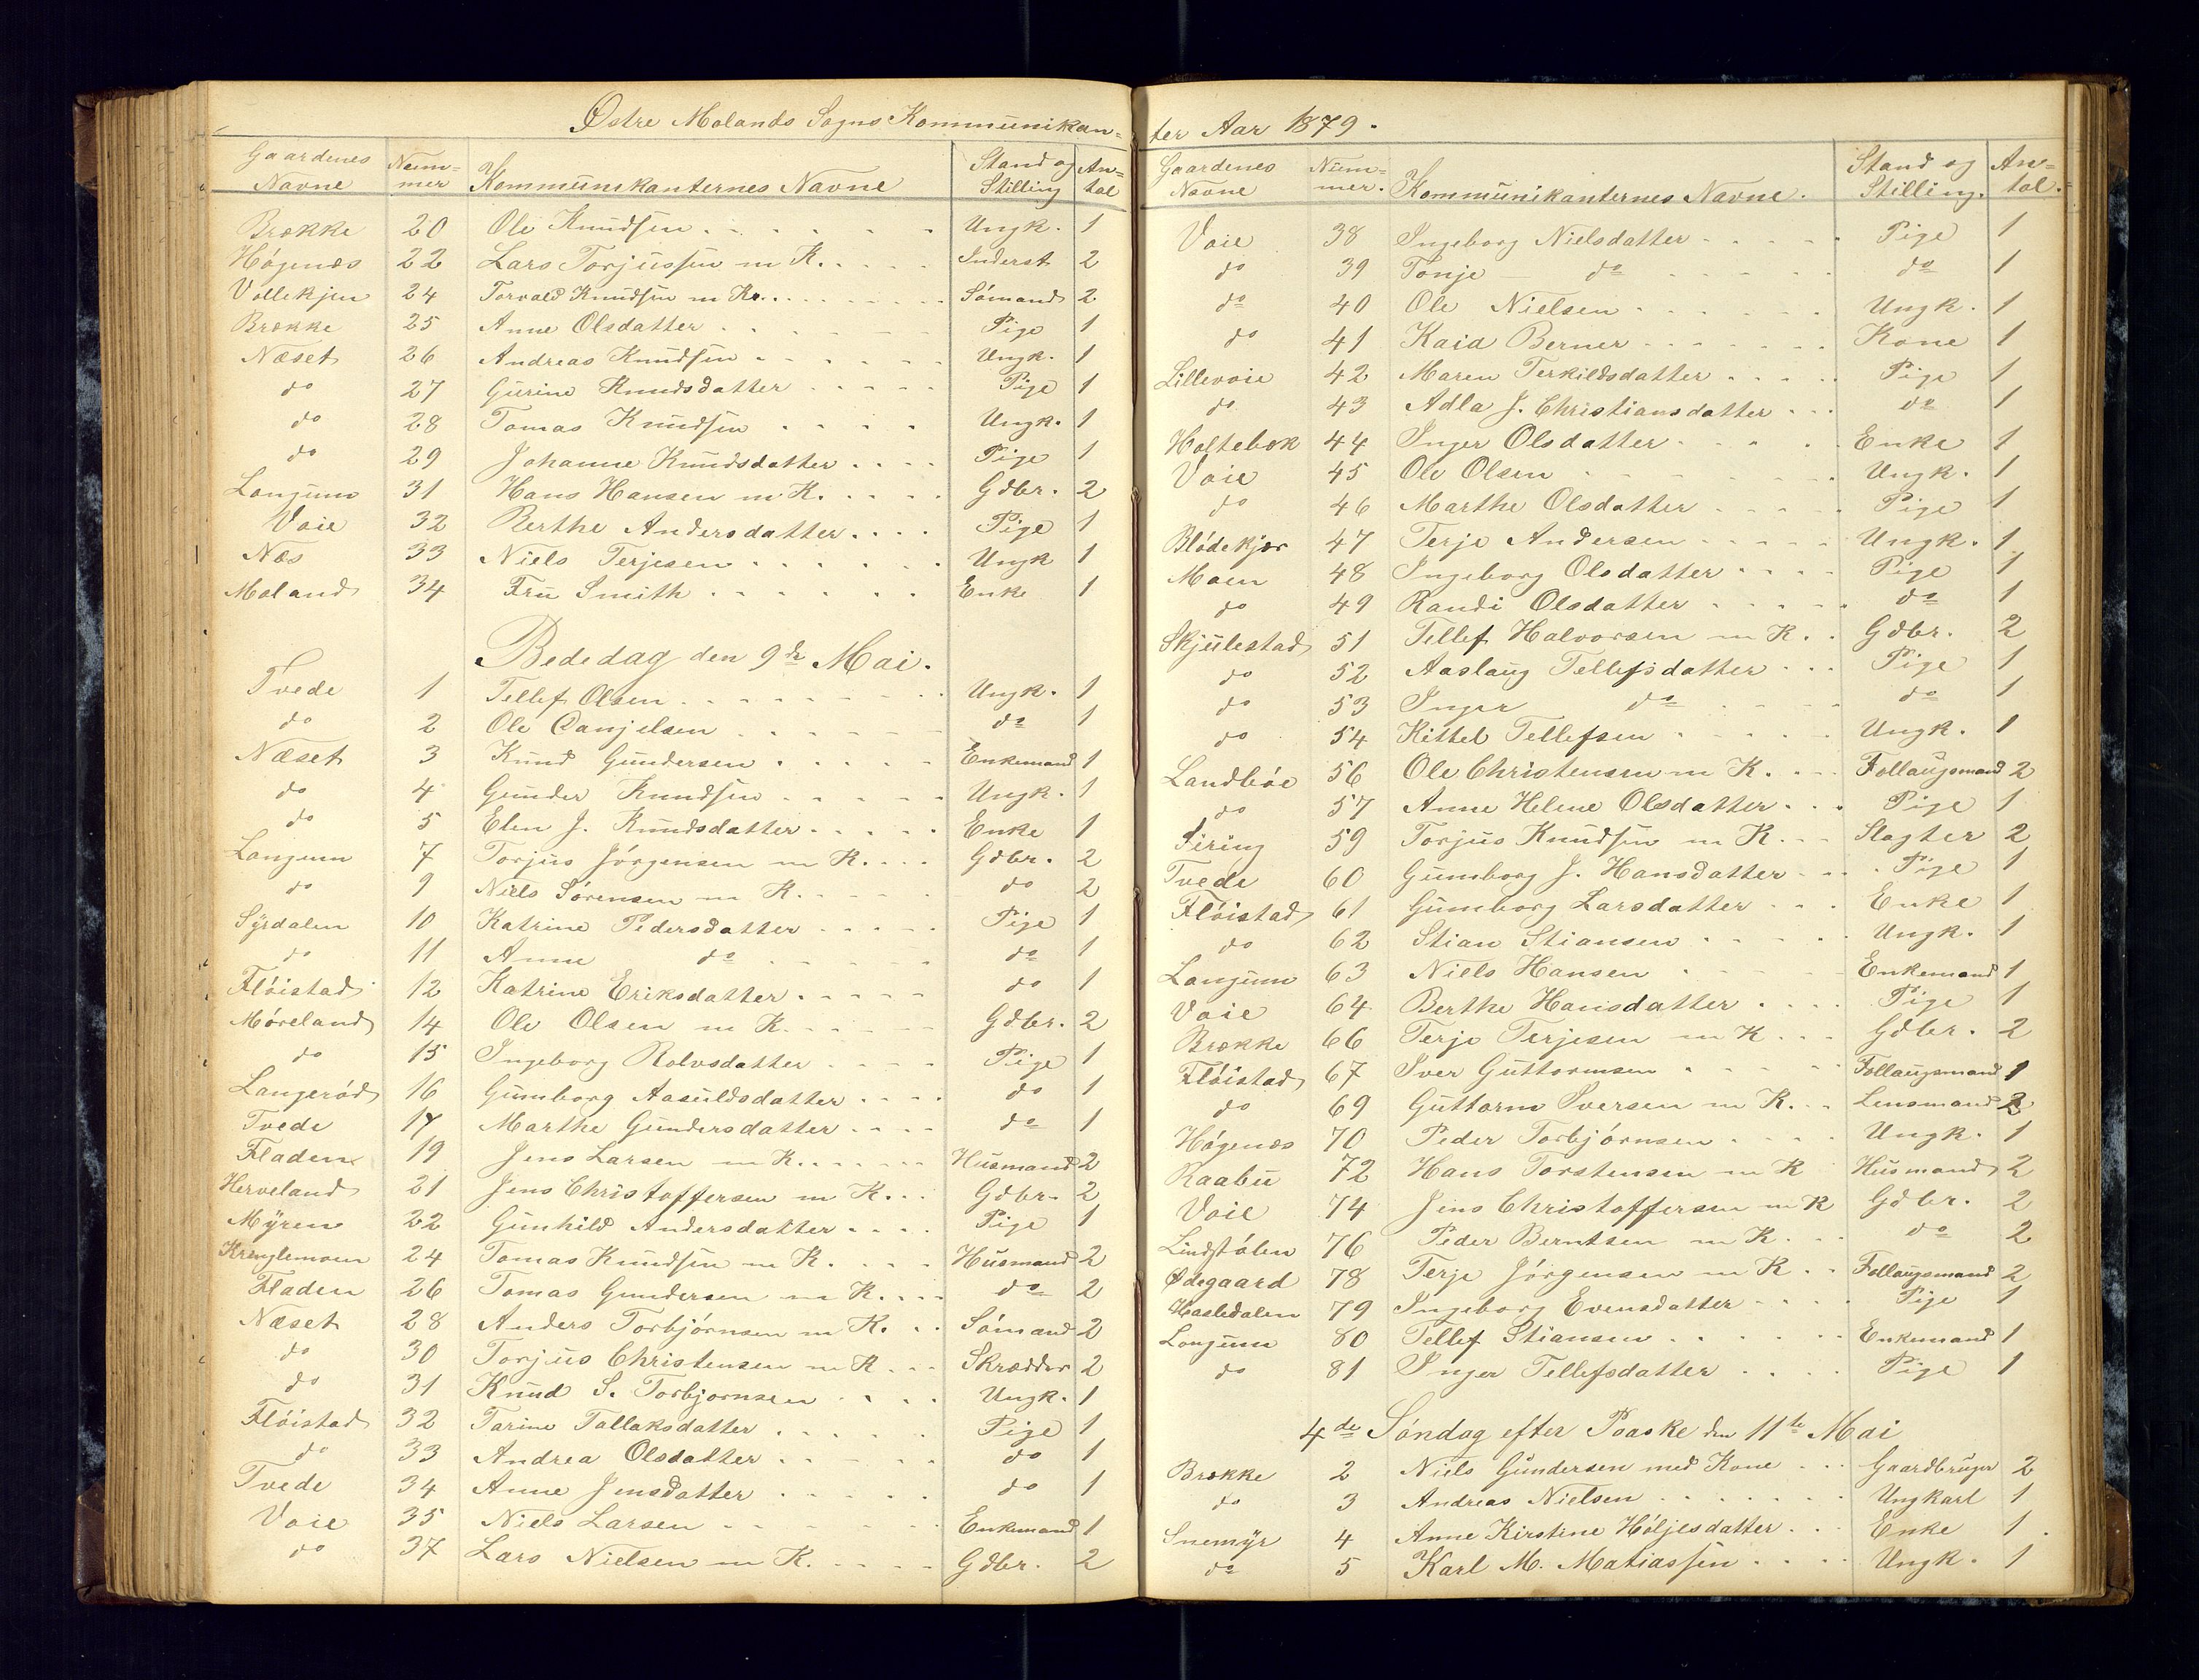 Østre Molands Sogns Kommunikan-
Gaardenes Navne Num-mer Kommunikanternes Navne Stand og Stilling An-tal
Brække 20 Ole Knudsen Ungk. 1
Høgenæs 22 Lars Torjussen m K. Inderst 2
Vollekjen 24 Torvald Knudsen m K. Sømand 2
Brække 25 Anne Olsdatter Pige 1
Næset 26 Andreas Knudsen Ungk. 1
do 27 Gurine Knudsdatter Pige 1
do 28 Tomas Knudsen Ungk. 1
do 29 Johanne Knudsdatter Pige 1
Longum 31 Hans Hansen m K. Gdbr. 2
Vaie 32 Berthe Andersdatter Pige 1
Næs 33 Niels Terjesen Ungk 1
Moland 34 Fru Smith Enke 1
Bededag den 9de Mai.
Tvede 1 Tellef Olsen Ungk. 1
do 2 Ole Danjelsen do 1
Næset 3 Knud Gundersen Enkemand 1
do 4 Gunder Knudsen Ungk. 1
do 5 Elen J. Knudsdatter Enke 1
Langum 7 Torjus Jørgensen m K. Gdbr. 2
do 9 Niels Sørensen m K. do 2
Syrdalen 10 Katrine Pedersdatter Pige 1
do 11 Anne do do 1
Fløistad 12 Katrine Eriksdatter do 1
Møreland 14 Ole Olsen m K. Gdbr. 2
do 15 Ingeborg Rolvsdatter Pige 1
Langerød 16 Gumborg Aasuldsdatter do 1
Tvede 17 Marthe Gundersdatter do 1
Fladen 19 Jens Larsen m K. Husmand 2
Herveland 21 Jens Christoffersen m K. Gdbr. 2
Myren 22 Gunhild Andersdatter Pige 1
Kringlemoen 24 Tomas Knudsen m K. Husmand 2
Fladen 26 Tomas Gundersen m K. do 2
Næset 28 Anders Torbjørnsen m K. Sømand 2
do 30 Torjus Christensen m K Skrædder 2
do 31 Knud S. Torbjornsen Ungk. 1
Fløistad 32 Tarine Tallaksdatter Pige 1
do 33 Andrea Olsdatter do 1
Tvede 34 Anne Jensdatter do 1
Vaie 35 Niels Larsen Enkemand 1
do 37 Lars Nielsen m K. Gdbr. 2
ter Aar 1879.
Gaardenes Navne Num-mer. Kommunikanternes Navne. Stand og Stilling. An-tal.
Vaie 38 Ingeborg Nielsdatter Pige 1
do 39 Tonje do do 1
do 40 Ole Nielsen Ungk. 1
do 41 Kaia Berner Kone 1
Lillevaie 42 Maren Terkildsdatter Pige 1
do 43 Adla J. Christiansdatter do 1
Holtebæk 44 Inger Olsdatter Enke 1
Vaie 45 Ole Olsen Ungk. 1
do 46 Marthe Olsdatter Pige 1
Blødekjær 47 Terje Andersen Ungk. 1
Moen 48 Ingeborg Olsdatter Pige 1
do 49 Randi Olsdatter do 1
Skjulestad 51 Tellef Halvorsen m K. Gdbr. 2
do 52 Aaslaug Tellefsdatter Pige 1
do 53 Inger do do 1
do 54 Kittel Tellefsen Ungk. 1
Landbøe 56 Ole Christensen m K. Follaugsmand 2
do 57 Anne Helene Olsdatter Pige 1
Firing 59 Torjus Knudsen m K. Slagter 2
Tvede 60 Gumborg J. Hansdatter Pige 1
Fløistad 61 Gumborg Larsdatter Enke 1
do 62 Stian Stiansen Ungk. 1
Langum 63 Niels Hansen Enkemand 1
Vaie 64 Berthe Hansdatter Pige 1
Brække 66 Terje Terjesen m K Gdbr. 2
Fløistad 67 Iver Guttormsen Follaugsmand 1
do 69 Guttorm Iversen m K. Lensmand 2
Høgenæs 70 Peder Torbjørnsen Ungk. 1
Raabu 72 Hans Torstensen m K Husmand 2
Vaie 74 Jens Christoffersen m K Gdbr. 2
Lindstølen 76 Peder Berntsen m K. do 2
Ødegaard 78 Terje Jørgensen m K Follaugsmand 2
Hasledalen 79 Ingeborg Evensdatter Pige 1
Longum 80 Tellef Stiansen Enkemand 1
do 81 Inger Tellefsdatter Pige 1
4de Søndag efter Paaske den 11te Mai
Brække 2 Niels Gundersen med Kone Gaardbruger 2
do 3 Andreas Nielsen Ungkarl 1
Snemyr 4 Anne Kirstine Høljesdatter Enke 1
do 5 Karl M. Matiassen Ungk. 1